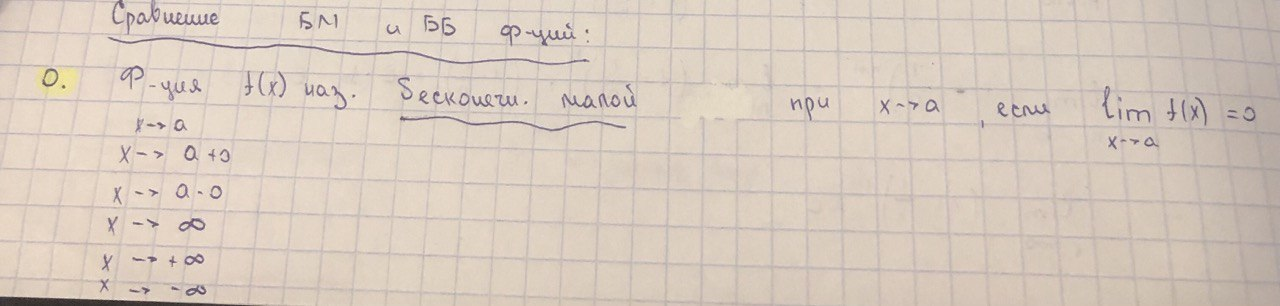 Сравнение БМ и ББ ф-ций:
О. Ф-ция f(x) наз. бесконечн. малой при x→a, если lim f(x) = 0
x→a
x→a
x→a+0
x→a-0
x→∞
x→+∞
x→-∞